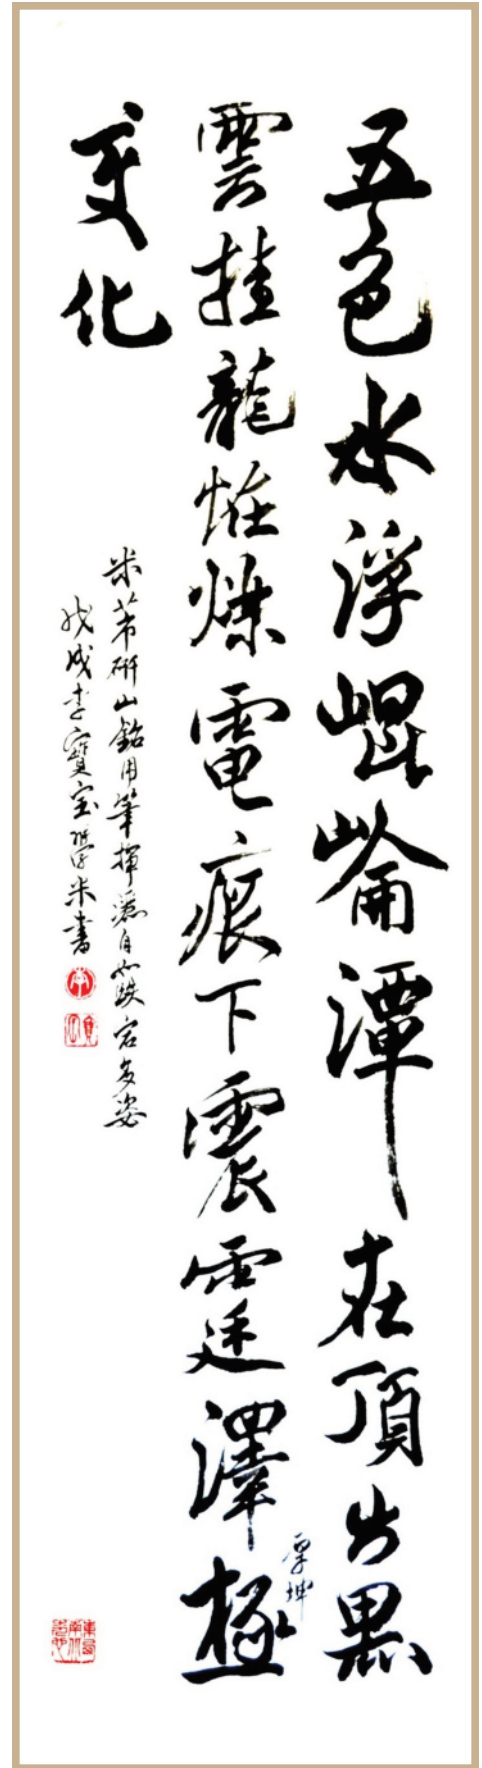 五色水浮崐崘潭在頂出黑
雲挂龍恠爍電痕下震霆澤極
厚坤
变化
米芾研山銘用筆揮灑自如跌宕多姿
戊戌李寶學米書